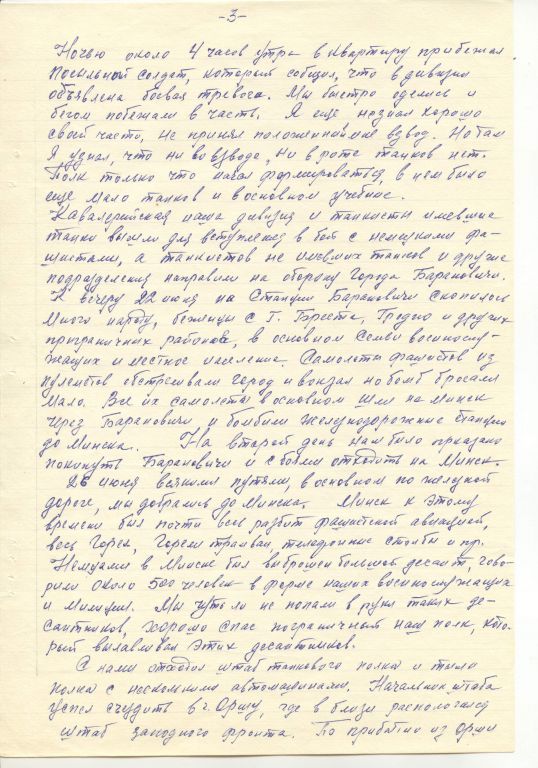 -3-
Ночью около 4 часов утра в квартиру прибежал
посыльной солдат, который собщил, что в дивизии
объявлена боевая тревога. Мы быстро оделись и
бегом побежали в часть. Я еще незнал хорошо
своей части, не принял положенный мне взвод. Но там
я узнал, что ни во взводе, ни в роте танков нет.
Полк только что начал формироваться, в нем было
еще мало танков и в основном учебные.
Кавалерийская наша дивизия и танкисты имевшие
танки вышли для вступления в бой с немецкими фа-
шистами, а танкистов не имевших танков и другие
подразделения направили на оборону города Барановичи.
К вечеру 22 июня на станции Барановичи скопилось
много народу, беженцы с г. Бреста, Гродно и других
приграничных районов, в основном семьи военнослу-
жащих и местное население. Самолеты фашистов из
пулеметов обстреливали город и вокзал но бомб бросали
мало. Все их самолеты в основном шли на Минск
через Барановичи и бомбили железнодорожные станции
до Минска. На второй день нам было приказано
покинуть Барановичи и с боями отходить на Минск.
26 июня всякими путями, в основном по железной
дороге, мы добрались до Минска. Минск к этому
времени был почти весь разбит фашистской авиацией,
весь горел, горели трамваи, телефонные столбы и пр.
Немцами в Минске был выброшен большой десант, гово-
рили около 500 человек в форме наших военнослужащих
и милиции. Мы чуть ли не попали в руки таких де-
сантников, хорошо спас пограничный наш полк, кото-
рый вылавливал этих десантников.
С нами отходил штаб танкового полка и тылы
полка с несколькими автомашинами. Начальник штаба
успел съездить в г. Оршу, где в близи располагался
штаб западного фронта. По прибытии из Орши